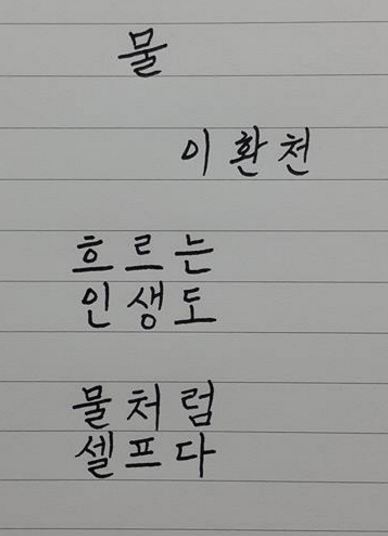 물
이환천
흐르는
인생도
물처럼
셀프다